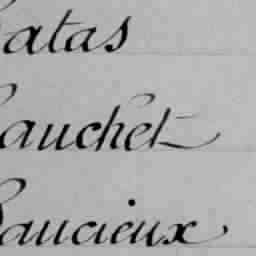 atas
auchet
aucieux